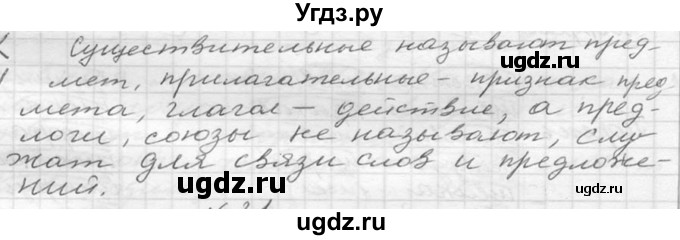 Угдз.ру
Существительные называют пред-
мет, прилагательные - признак пред-
мета, глагол – действие, а пред-
логи, союзы не называют, слу
жат для связи слов и предложе-
ний.
ugdz.ru
ugdz.ru
ugdz.ru
ugdz.ru
ugdz.ru
ugdz.ru